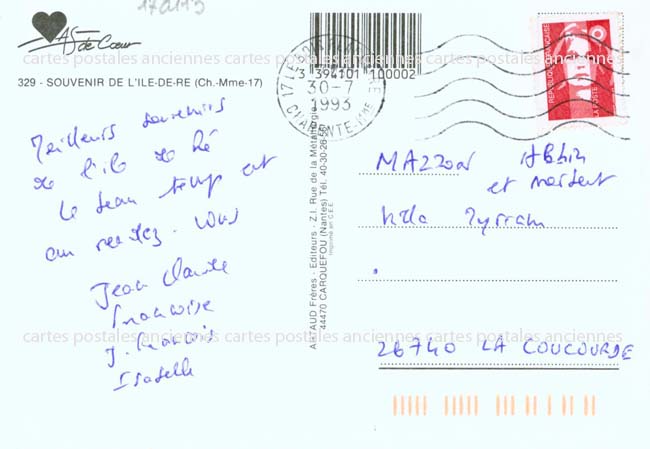 170113
AS de Cœur
329 - SOUVENIR DE L'ILE-DE-RE (Ch.-Mme-17)
Meilleurs souvenirs
de l'île de Ré
Le beau temps est
au rendez-vous
Jean Claude
Françoise
J. François
Isabelle
3 394101 100002
30-7
1993
CHARENTE-MME
REPUBLIQUE FRANÇAISE
LA POSTE
ARTAUD Frères - Editeurs - Z.I. Rue de la Métallurgie
44470 CARQUEFOU (Nantes) Tél. 40-30-26-52
Imprimé en C.E.E.
MAZZONI
et
Villa
26740 LA COUCOURDE
cartes postales anciennes cartes postales anciennes cartes postales anciennes
cartes postales anciennes cartes postales anciennes cartes postales anciennes